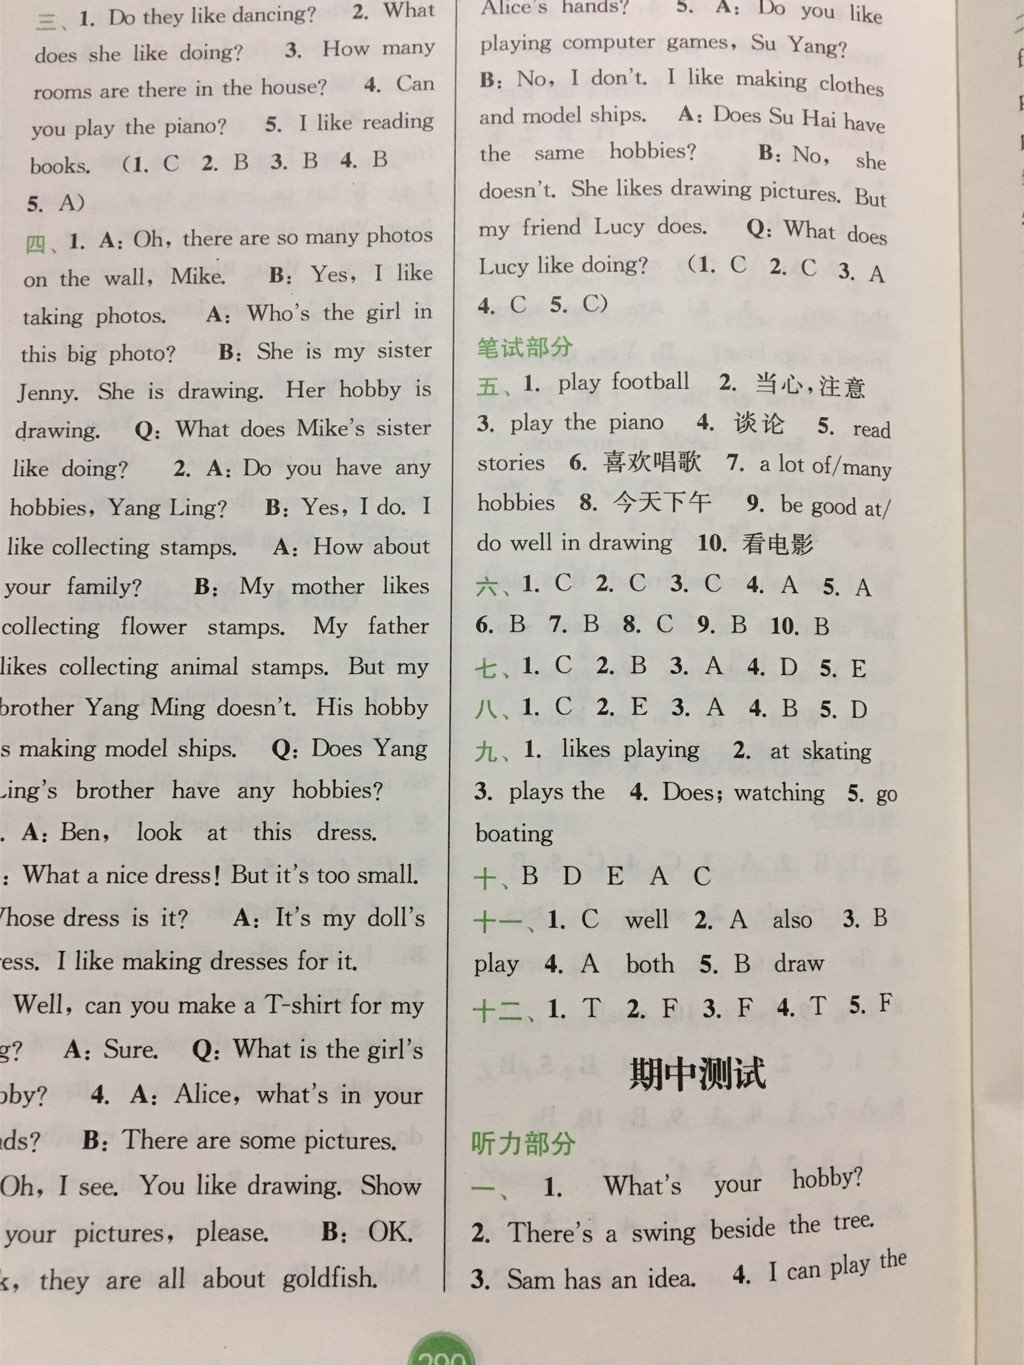 三、1. Do they like dancing? 2. What
does she like doing? 3. How many
rooms are there in the house? 4. Can
you play the piano? 5. I like reading
books. (1. C 2. B 3. B 4. B
5. A)
四、1. A: Oh, there are so many photos
on the wall, Mike. B: Yes, I like
taking photos. A: Who's the girl in
this big photo? B: She is my sister
Jenny. She is drawing. Her hobby is
drawing. Q: What does Mike's sister
like doing? 2. A: Do you have any
hobbies, Yang Ling? B: Yes, I do. I
like collecting stamps. A: How about
your family? B: My mother likes
collecting flower stamps. My father
likes collecting animal stamps. But my
brother Yang Ming doesn't. His hobby
s making model ships. Q: Does Yang
Ling's brother have any hobbies?
. A: Ben, look at this dress.
: What a nice dress! But it's too small.
Whose dress is it? A: It's my doll's
ess. I like making dresses for it.
Well, can you make a T-shirt for my
g? A: Sure. Q: What is the girl's
bby? 4. A: Alice, what's in your
ds? B: There are some pictures.
Oh, I see. You like drawing. Show
your pictures, please. B: OK.
k, they are all about goldfish.
Alice's hands? 5. A: Do you like
playing computer games, Su Yang?
B: No, I don't. I like making clothes
and model ships. A: Does Su Hai have
the same hobbies? B: No, she
doesn't. She likes drawing pictures. But
my friend Lucy does. Q: What does
Lucy like doing? (1. C 2. C 3. A
4. C 5. C)
笔试部分
五、1. play football 2. 当心,注意
3. play the piano 4. 谈论 5. read
stories 6. 喜欢唱歌 7. a lot of/many
hobbies 8. 今天下午 9. be good at/
do well in drawing 10. 看电影
六、1. C 2. C 3. C 4. A 5. A
6. B 7. B 8. C 9. B 10. B
七、1. C 2. B 3. A 4. D 5. E
八、1. C 2. E 3. A 4. B 5. D
九、1. likes playing 2. at skating
3. plays the 4. Does; watching 5. go
boating
十、B D E A C
十一、1. C well 2. A also 3. B
play 4. A both 5. B draw
十二、1. T 2. F 3. F 4. T 5. F
期中测试
听力部分
一、1. What's your hobby?
2. There's a swing beside the tree.
3. Sam has an idea. 4. I can play the
290